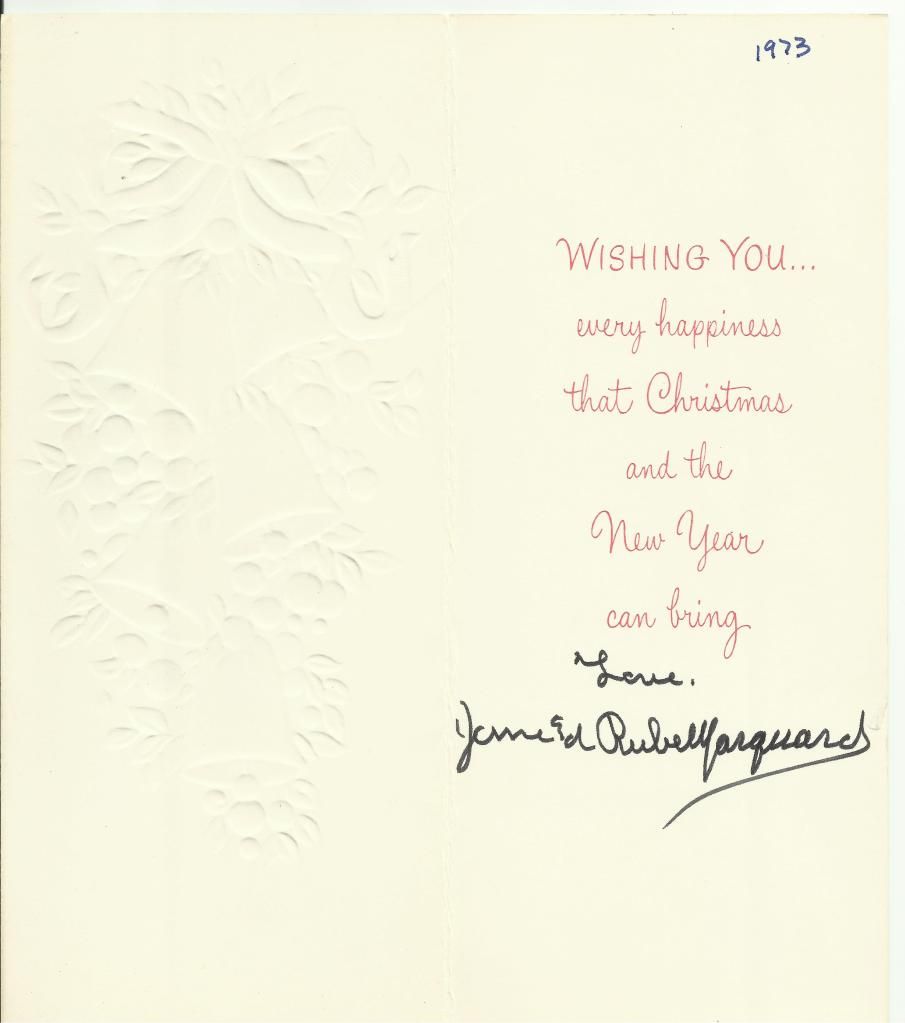 1973
WISHING YOU...
every happiness
that Christmas
and the
New Year
can bring
Love.
Jane & Rube Marquard